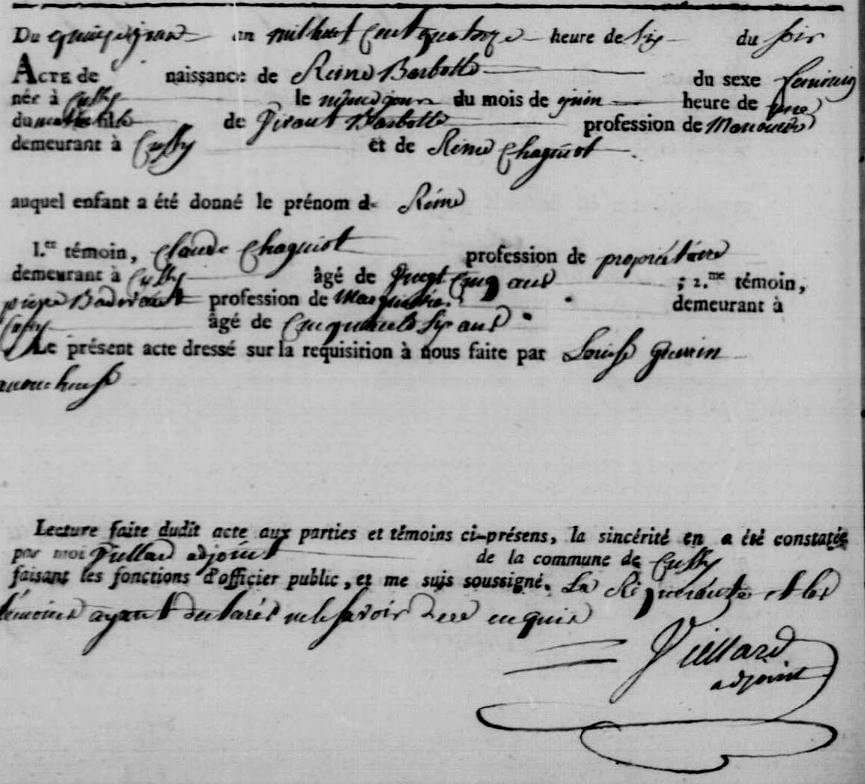 Du quinze juin an mil huit cent quatorze heure de six du soir
ACTE de naissance de Reine Barbotte du sexe feminin
née à Cussy le même jour du mois de juin heure de une
du matin fille de Barbotte profession de Manouvrier
demeurant à Cussy et de Reine Chaguiot
auquel enfant a été donné le prénom de Reine
I.er témoin, Claude Chaguiot profession de propriétaire
demeurant à Cussy âgé de vingt cinq ans ; 2.me témoin,
pierre profession de demeurant à
Cussy âgé de cinquante six ans
Le présent acte dressé sur la requisition à nous faite par Louise
Lecture faite dudit acte aux parties et témoins ci-présens, la sincérité en a été constatée
par moi Viellard adjoint de la commune de Cussy
faisant les fonctions d'officier public, et me suis soussigné. La Requerante et les
témoins ayant declarés ne le savoir de ce enquis
Viellard
adjoint